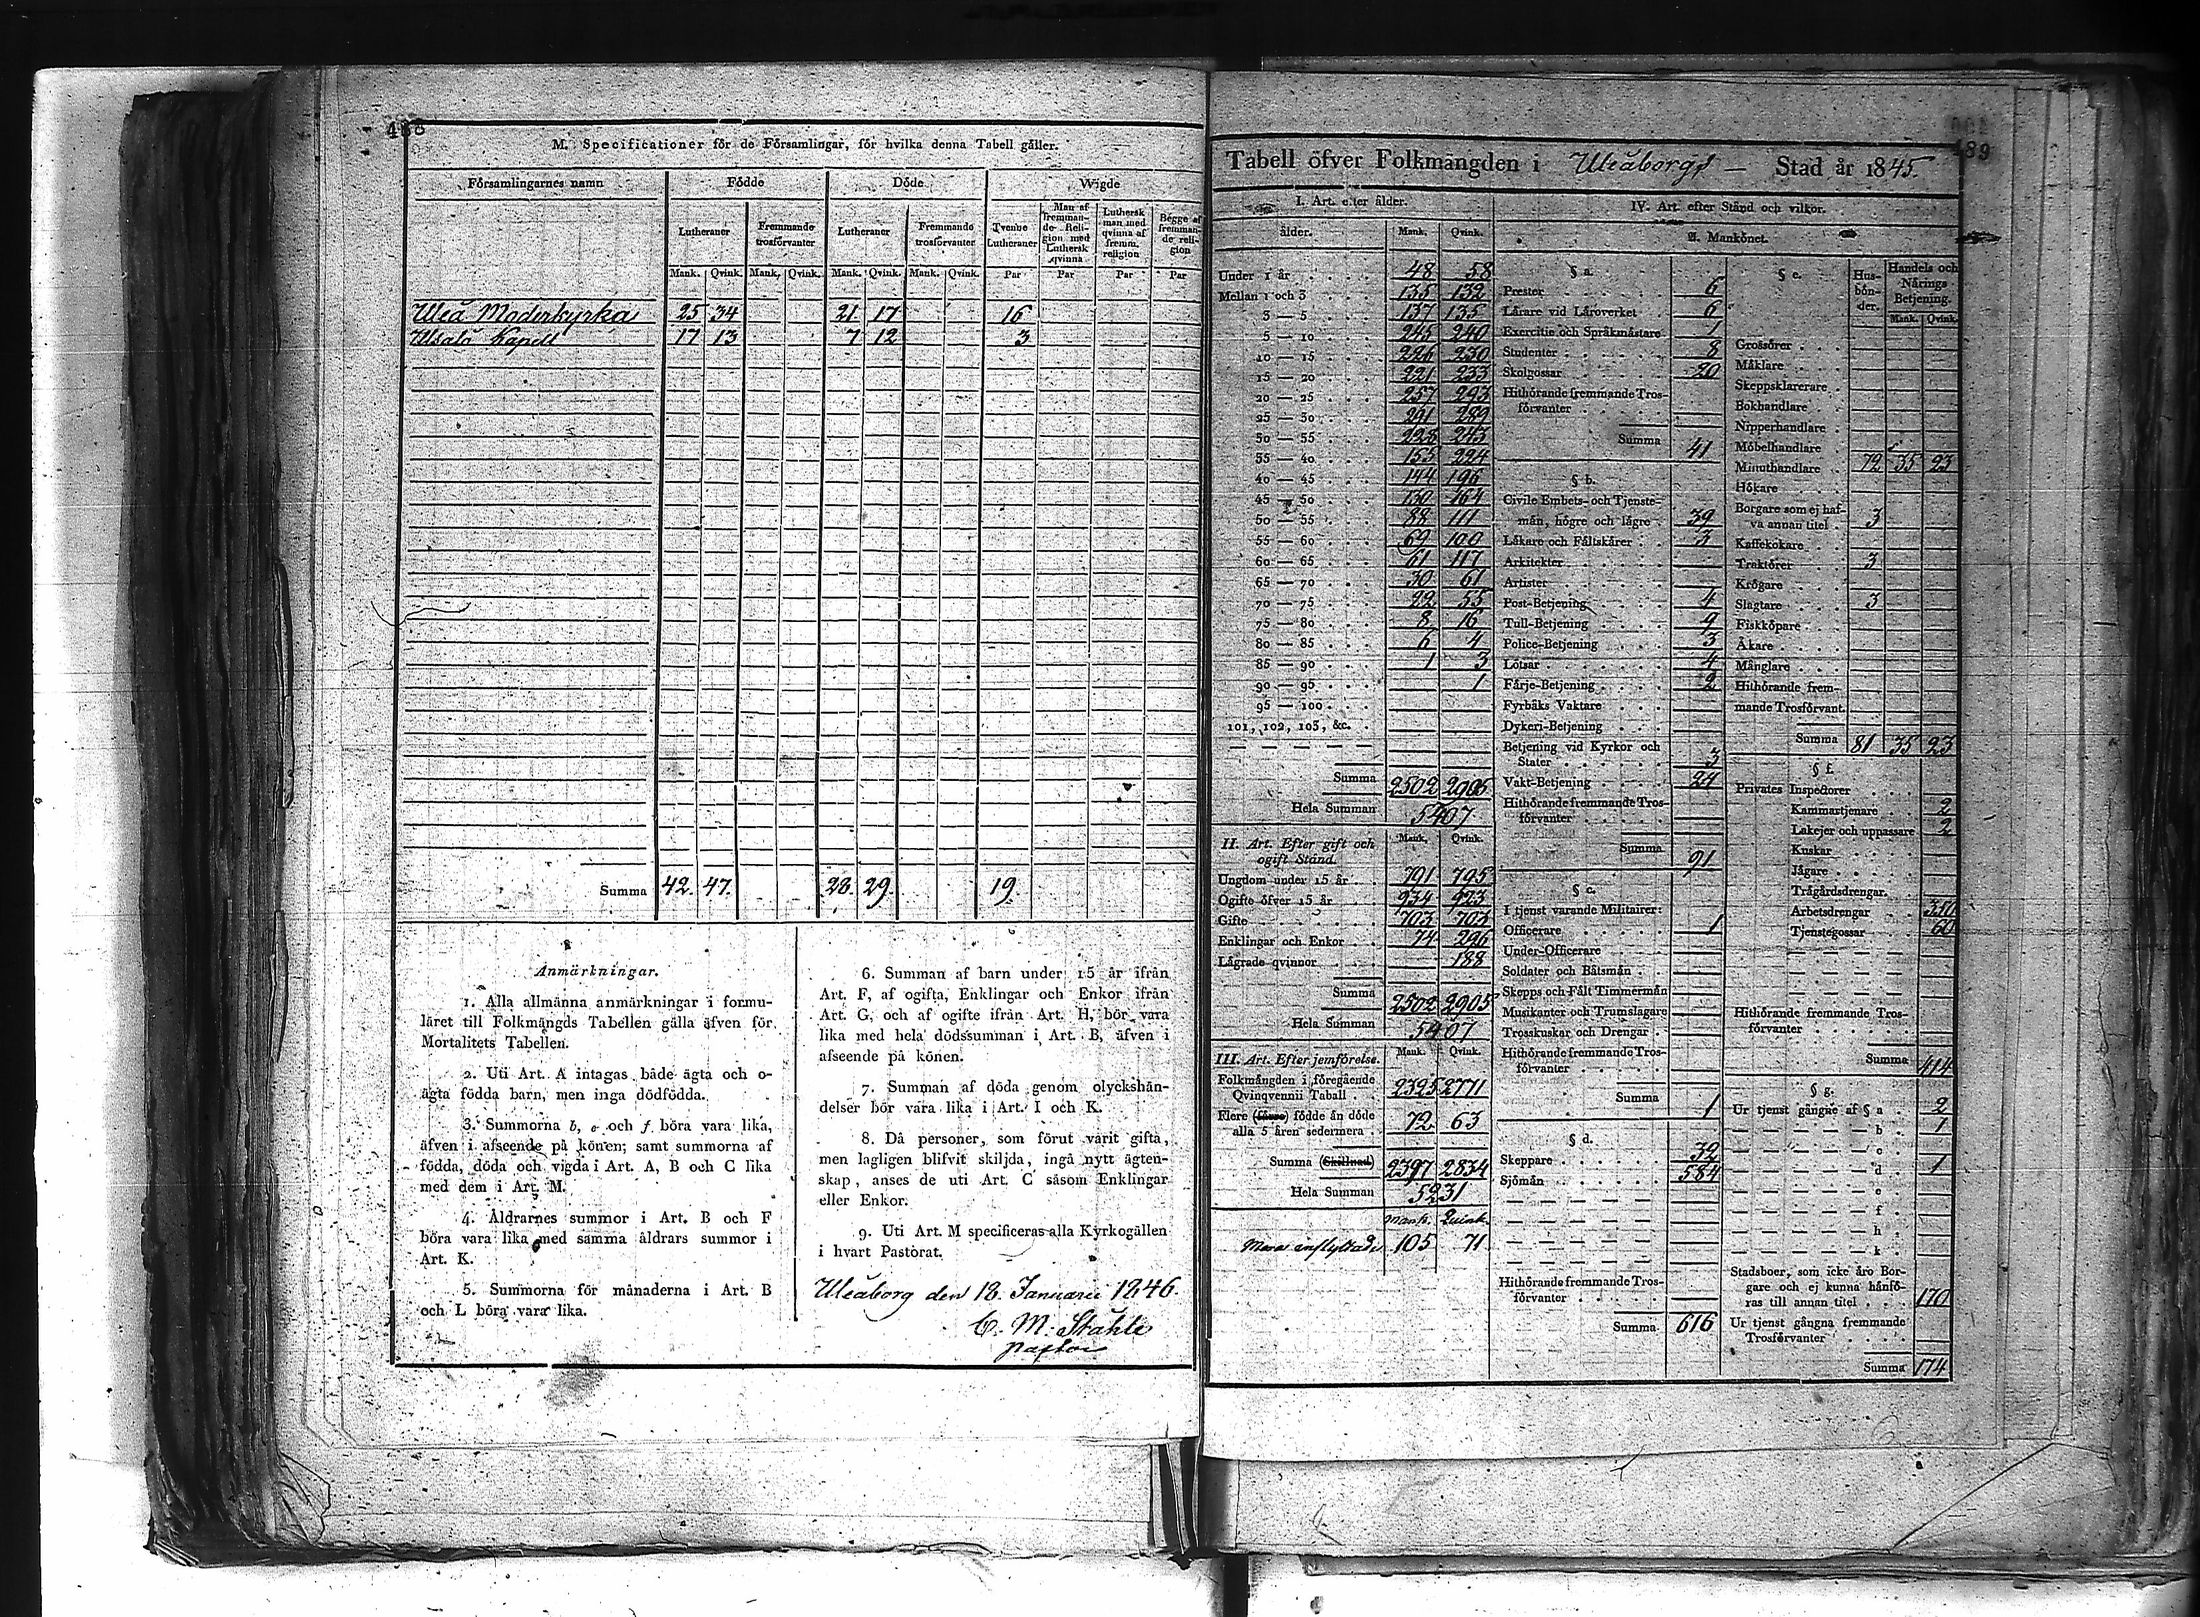 488
M. Specificationer för de Församlingar, för hvilka denna Tabell gäller.
Församlingarnes namn Födde Döde Wigde
Lutheraner Fremmande trosförvanter Lutheraner Fremmande trosförvanter Tvenne Lutheraner Man af fremmande Religion med Luthersk qvinna Luthersk man med qvinna af fremm. religion Begge af fremmande religion
Mank. Qvink. Mank. Qvink. Mank. Qvink. Mank. Qvink. Par Par Par Par
Uleå Moderkyrka 25 34 21 17 16
Ulsalo Kapell 17 13 7 12 3
Summa 42. 47. 28. 29. 19.
Anmärkningar.
1. Alla allmänna anmärkningar i formu-
läret till Folkmängds Tabellen gälla äfven för
Mortalitets Tabellen.
2. Uti Art. A intagas både ägta och o-
ägta födda barn, men inga dödfödda.
3. Summorna b, e och f böra vara lika,
äfven i afseende på könen; samt summorna af
födda, döda och vigda i Art. A, B och C lika
med dem i Art. M.
4. Åldrarnes summor i Art. B och F
böra vara lika med samma åldrars summor i
Art. K.
5. Summorna för månaderna i Art. B
och L böra vara lika.
6. Summan af barn under 15 år ifrån
Art. F, af ogifta, Enklingar och Enkor ifrån
Art. G, och af ogifte ifrån Art. H, bör vara
lika med hela dödssumman i Art. B, äfven i
afseende på könen.
7. Summan af döda genom olyckshän-
delser bör vara lika i Art. I och K.
8. Då personer, som förut varit gifta,
men lagligen blifvit skiljda, ingå nytt ägten-
skap, anses de uti Art. C såsom Enklingar
eller Enkor.
9. Uti Art. M specificeras alla Kyrkogällen
i hvart Pastorat.
Uleåborg den 18. Januarii 1846.
C. M. Ståhle
pastor
489
Tabell öfver Folkmängden i Uleåborgs — Stad år 1845.
I. Art. efter ålder.
ålder. Mank. Qvink.
Under 1 år 48 58
Mellan 1 och 3 135 132
3 — 5 137 135
5 — 10 245 240
10 — 15 226 230
15 — 20 221 233
20 — 25 257 293
25 — 30 291 289
30 — 35 228 243
35 — 40 155 224
40 — 45 144 196
45 — 50 130 164
50 — 55 88 111
55 — 60 69 100
60 — 65 61 117
65 — 70 30 61
70 — 75 22 55
75 — 80 8 16
80 — 85 6 4
85 — 90 1 3
90 — 95 1
95 — 100
101, 102, 103, &c.
Summa 2502 2905
Hela Summan 5407
II. Art. Efter gift och ogift Stånd. Mank. Qvink.
Ungdom under 15 år 791 795
Ogifte öfver 15 år 934 923
Gifte 703 703
Enklingar och Enkor 74 296
Lägrade qvinnor 188
Summa 2502 2905
Hela Summan 5407
III. Art. Efter jemförelse. Mank. Qvink.
Folkmängden i föregående Qvinqvennii Taball 2325 2771
Flere (färre) födde än döde alla 5 åren sedermera 72 63
Summa (Skillnad) 2397 2834
Hela Summan 5231
Mank. Quink.
Mera inflyttade 105 71
IV. Art. efter Stånd och vilkor.
Æ. Mankönet.
§ a.
Prester 6
Lärare vid Läroverket 6
Exercitie och Språkmästare 1
Studenter 8
Skolgossar 20
Hithörande fremmande Tros-
förvanter
Summa 41
§ b.
Civile Embets- och Tjenste-
män, högre och lägre 39
Läkare och Fältskärer 3
Arkitekter
Artister
Post-Betjening 4
Tull-Betjening 9
Police-Betjening 3
Lotsar 4
Färje-Betjening 2
Fyrbåks Vaktare
Dykeri-Betjening
Betjening vid Kyrkor och
Stater 3
Vakt-Betjening 24
Hithörande fremmande Tros-
förvanter
Summa 91
§ c.
I tjenst varande Militairer:
Officerare 1
Under-Officerare
Soldater och Båtsmän
Skepps och Fält Timmermän
Musikanter och Trumslagare
Trosskuskar och Drengar
Hithörande fremmande Tros-
förvanter
Summa 1
§ d.
Skeppare 32
Sjömän 584
Hithörande fremmande Tros-
förvanter
Summa 616
§ e. Hus-bön-der. Handels och Närings Betjening.
Mank. Qvink.
Grossörer
Mäklare
Skeppsklarerare
Bokhandlare
Nipperhandlare
Möbelhandlare
Minuthandlare 72 35 23
Hökare
Borgare som ej haf-
va annan titel 3
Kaffekokare
Traktörer 3
Krögare
Slagtare 3
Fiskköpare
Åkare
Månglare
Hithörande frem-
mande Trosförvant.
Summa 81 35 23
§ f.
Privates Inspectorer
Kammartjenare 2
Lakejer och uppassare 2
Kuskar
Jägare
Trägårdsdrengar.
Arbetsdrengar 350
Tjenstegossar 60
Hithörande fremmande Tros-
förvanter
Summa 414
§ g.
Ur tjenst gångne af § a 2
b 1
c
d 1
e
f
h
k
Stadsboer, som icke äro Bor-
gare och ej kunna hänfö-
ras till annan titel 170
Ur tjenst gångna fremmande
Trosförvanter
Summa 174